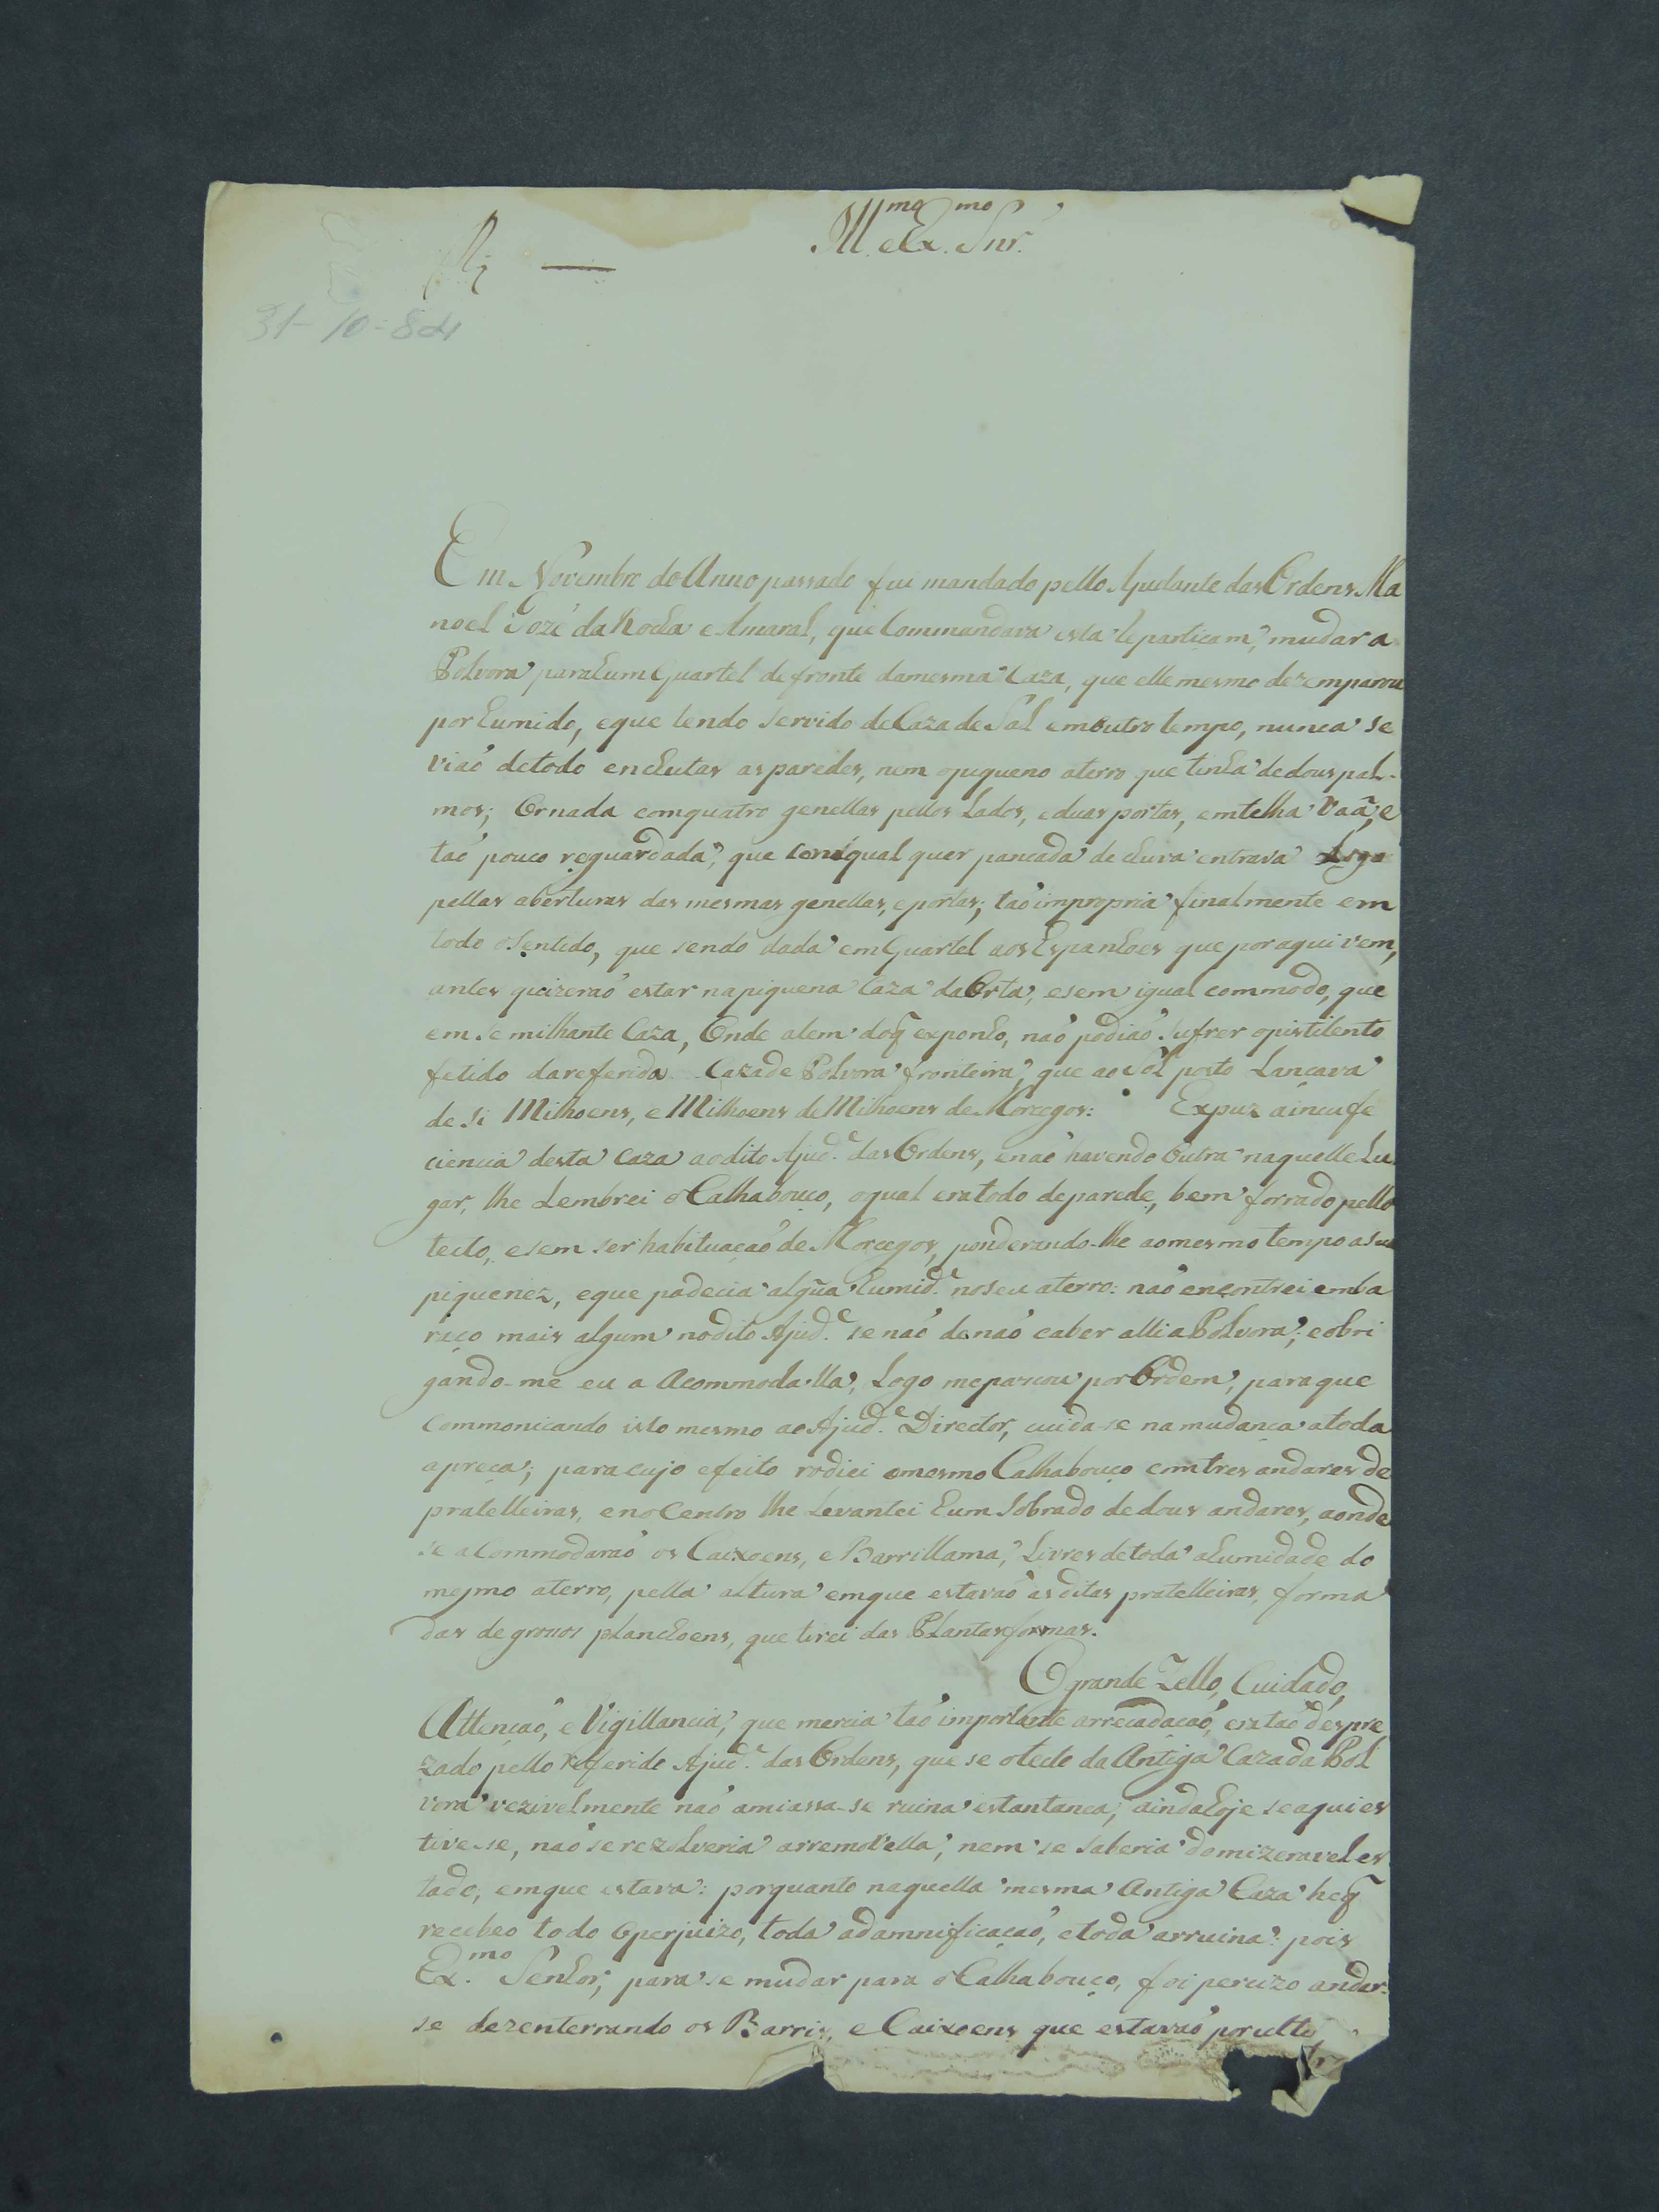 Ill.mo e Ex.mo Snr.
31-10-804
Em Novembro do Anno passado fui mandado pello Ajudante das Ordens Ma
noel Jozé da Rocha e Amaral, que Commandava esta Reparticam, mudar a
Polvora para hum Quartel defronte da mesma Caza, que elle mesmo dezemparou
por humido, e que tendo servido de Caza de Sal em outro tempo, nunca se
viaó de todo enchutas as paredes, nem o piqueno aterro que tinha de dous pal-
mos; Ornada com quatro genellas pellos Lados, e duas portas, em telha Vaã, e
taó pouco reguardada, que com qual quer pancada de chuva entrava Logo
pellas aberturas das mesmas genellas, e portas; taó impropria finalmente em
todo o Sentido, que sendo dada em Quartel aos Espanhoes que por aqui vem,
antes quizeraó estar na piquena Caza da Orta, e sem igual commodo, que
em semilhante Caza, Onde alem do q̃ exponho, naó podiaó sufrer o pistilento
fetido da referida Caza de Polvora fronteira, que ao Sol posto Lançava
de si Milhoens, e Milhoens de Milhoens de Morcegos: Expuz a incufe
ciencia desta Caza ao dito Ajud.e das Ordens, e naó havendo Outra naquelle Lu
gar, lhe Lembrei o Calhabouço, o qual era todo de parede, bem forrado pello
tecto, e sem ser habituaçaó de Morcegos, ponderando-lhe ao mesmo tempo a sua
piquenez, e que padecia algũa humid.e no seu aterro: naó encontrei emba
raço mais algum no dito Ajud.e se naó de naó caber alli a Polvora; e obri
gando-me eu a Acommoda-lla, Logo me passou por Ordem, para que
commonicando isto mesmo ao Ajud.e Director, cuida-se na mudança a toda
a preça; para cujo efeito rodiei o mesmo Calhabouço com tres andares de
pratelleiras, e no Centro lhe Levantei hum Sobrado de dous andares, aonde
se acommodaraó os Caixoens, e Barrillama, Livres de toda a humidade do
mesmo aterro, pella altura em que estavaó as ditas pratelleiras, forma
das de grossos planchoens, que tirei das Plantasformas.
O grande Zello, Cuidado,
Attençaó, e Vigillancia, que mercia taó importante arrecadaçaó, era taó despre
zado pello referido Ajud.e das Ordens, que se o tecto da Antiga Caza da Pol
vora vezivelmente naó amiassa-se ruina estantanea, ainda hoje se aqui es
tive-se, naó se rezolveria arremove-lla, nem se saberia do mizeravel es
tado, em que estava: porquanto naquella mesma Antiga Caza he q̃
recebeo todo o perjuizo, toda a damnificaçaó, e toda a rruina: pois
Ex.mo Senhor, para se mudar para o Calhabouço, foi percizo andar-
se dezenterrando os Barris, e Caixoens que estavaó por